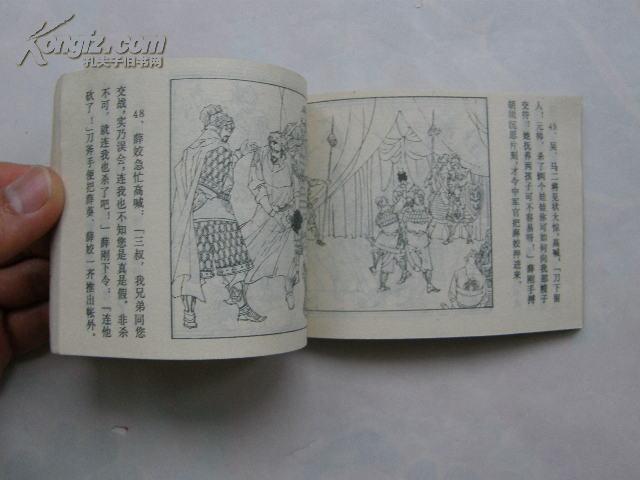 Kongfz.com
孔夫子旧书网
48. 薛蛟急忙高喊：「三叔，我兄弟同您
交战，实乃误会；连我也不知您是真是假。非杀
不可，就连我也杀了吧！」薛刚下令：「连他
砍了！」刀斧手便把薛葵、薛蛟一齐推出帐外。
吴、马二将见状大惊，高喊，「刀下留
人！元帅，杀了俩个娃娃你可如何向我那嫂子
交待！她抚养两孩子可不容易呀！」薛刚手捋
胡须沉思片刻，才令中军官把薛蛟押进来。